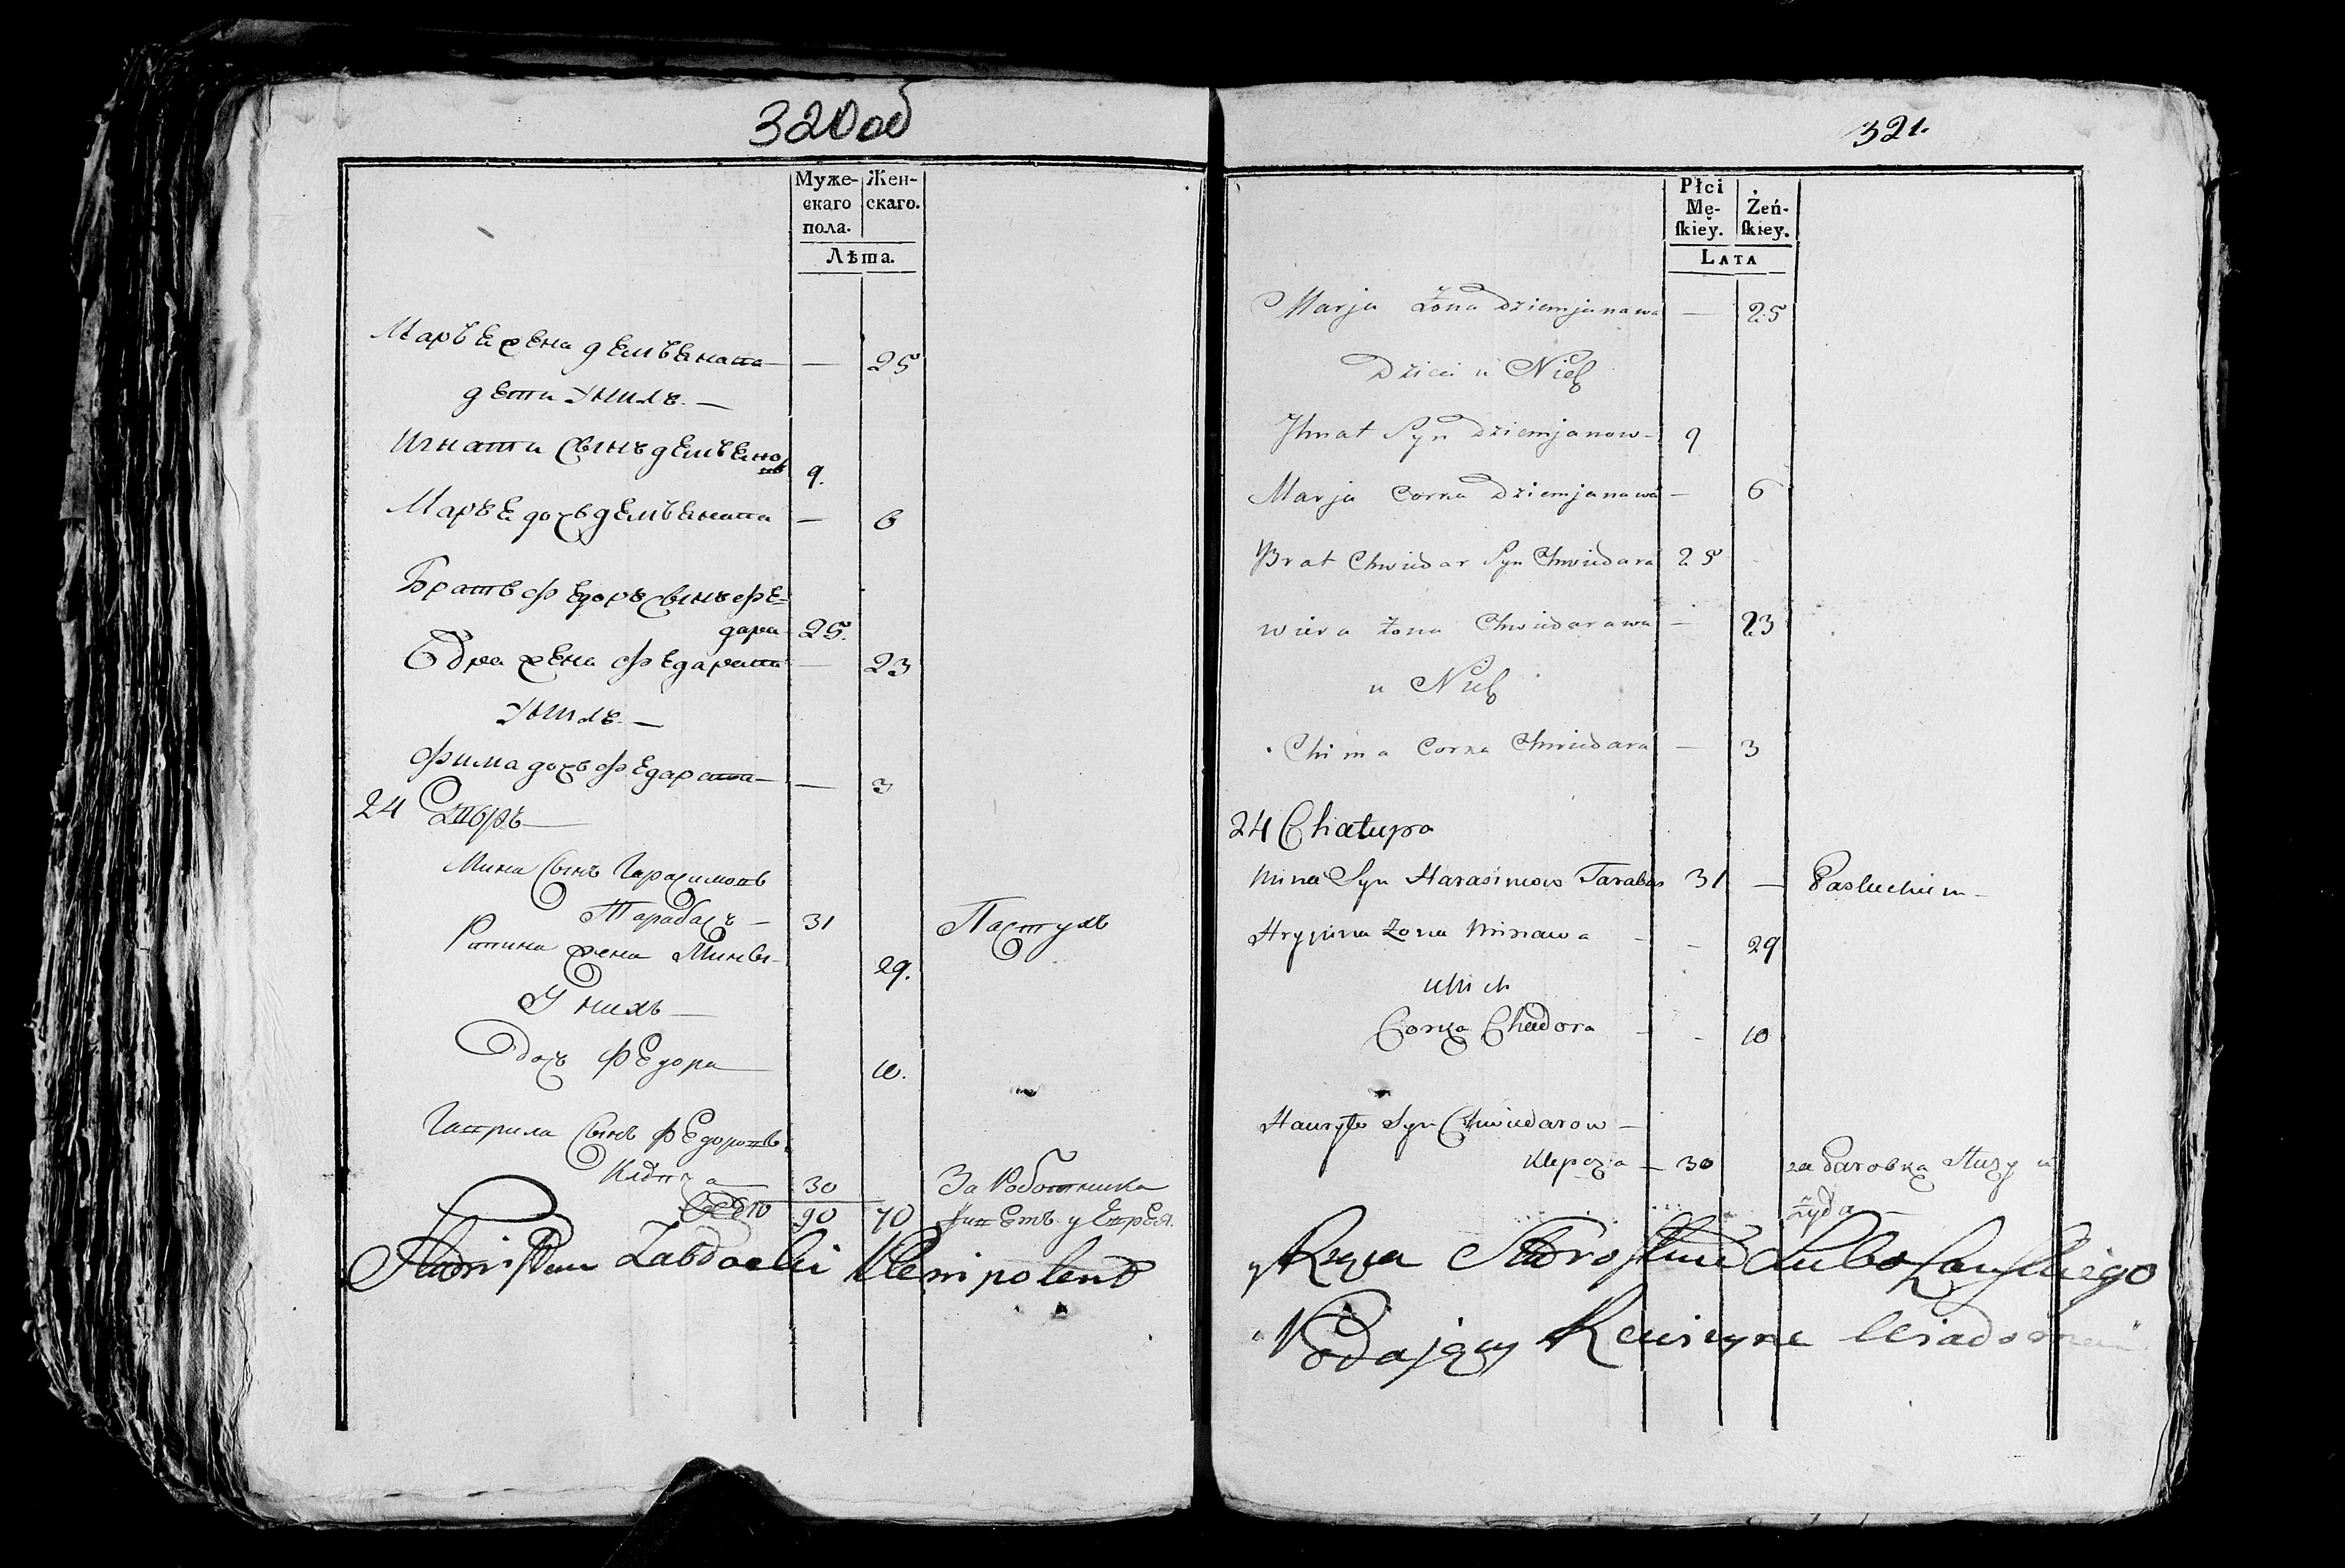 320об
Муже-
скаго
пола.
Жен-
скаго.
Лѣта.
Маръя жена демъянова — 25
дети У нихъ. —
Игнати сынъ демъяновъ 9.
Маръя дочъ демъянова — 6
Братъ Федоръ сынъ Фе=
дара 25.
жена Федарова — 23
У нихъ. —
Фима дочъ Федарова — 3
24 Двфръ —
Мина сынъ Гарасимовъ
Тарабасъ — 31 Пастухъ
жена Минъы 29.
У нихъ —
дочъ Федора 10.
Гаврила сынъ Федоровъ
30 За Работника
90 70 живетъ у Еврея.
Zabdocki Plenipotent
321.
Płci
Mę-
ſkiey.
Żeń-
ſkiey.
LATA
Marja Żona Dziemjanawa — 25
Dzieci u Nich
Jhnat Syn Dziemjanow — 9
Marja Corka Dziemjanawa — 6
Brat Chwiedar Syn Chwiedara 25
Wiera Żona Chwiedarawa — 23
u Nich
Chima Corka Chwiedara — 3
24 Chałupa
Mina Syn Harasimow Tarabas 31 — Pastuchiem —
Hrypina Żona Minawa — 29
u Nich
Corka Chadora — 10
Hauryło Syn Chwiedarow —
— 30 za Parobka Służy u
Żyda —
Podający Rewizyne Wiadomości